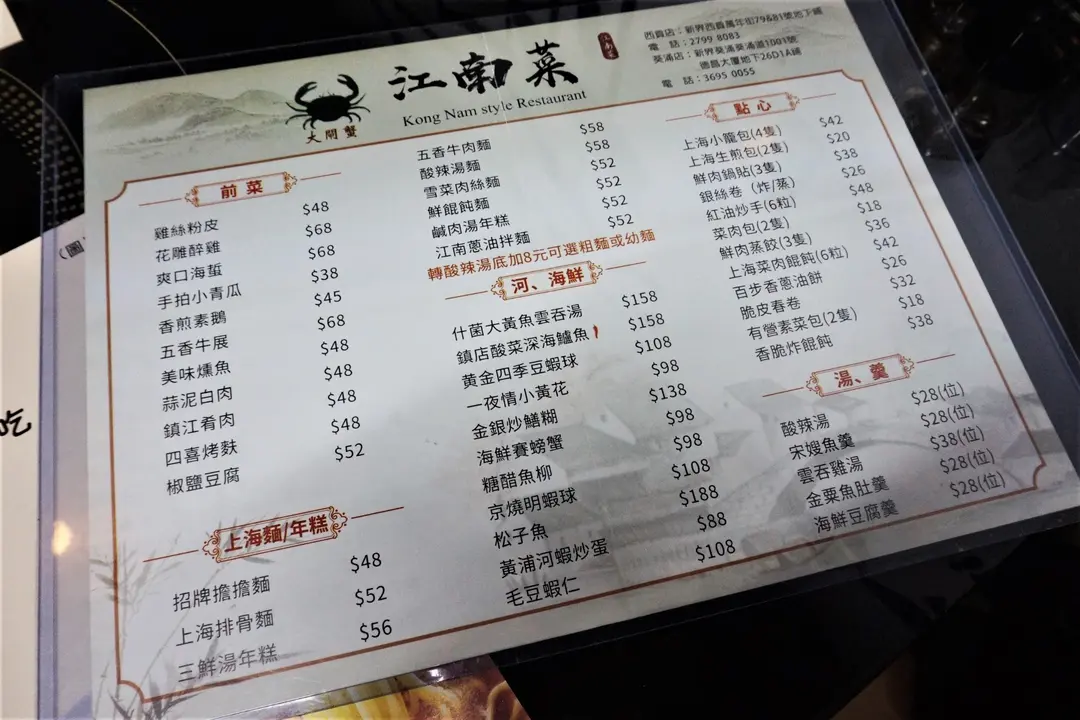 江南菜
江南菜
Kong Nam style Restaurant
大閘蟹
西貢店：新界西貢萬年街79&81號地下舖
電 話：2799 8083
葵涌店：新界葵涌葵涌道1001號
德昌大廈地下26D1A舖
電 話：3695 0055
前菜
雞絲粉皮 $48
花雕醉雞 $68
爽口海蜇 $68
手拍小青瓜 $38
香煎素鵝 $45
五香牛展 $68
美味燻魚 $48
蒜泥白肉 $48
鎮江肴肉 $48
四喜烤麩 $48
椒鹽豆腐 $52
上海麵/年糕
招牌擔擔麵 $48
上海排骨麵 $52
三鮮湯年糕 $56
五香牛肉麵 $58
酸辣湯麵 $58
雪菜肉絲麵 $52
鮮餛飩麵 $52
鹹肉湯年糕 $52
江南蔥油拌麵 $52
轉酸辣湯底加8元可選粗麵或幼麵
河、海鮮
什菌大黃魚雲吞湯 $158
鎮店酸菜深海鱸魚 $158
黃金四季豆蝦球 $108
一夜情小黃花 $98
金銀炒鱔糊 $138
海鮮賽螃蟹 $98
糖醋魚柳 $98
京燒明蝦球 $108
松子魚 $188
黃浦河蝦炒蛋 $88
毛豆蝦仁 $108
點心
上海小籠包(4隻) $42
上海生煎包(2隻) $20
鮮肉鍋貼(3隻) $38
銀絲卷（炸/蒸） $26
紅油炒手(6粒) $48
菜肉包(2隻) $18
鮮肉蒸餃(3隻) $36
上海菜肉餛飩(6粒) $42
百步香蔥油餅 $26
脆皮春卷 $32
有營素菜包(2隻) $18
香脆炸餛飩 $38
湯、羹
酸辣湯 $28(位)
宋嫂魚羹 $28(位)
雲吞雞湯 $38(位)
金粟魚肚羹 $28(位)
海鮮豆腐羹 $28(位)
(圖
吃